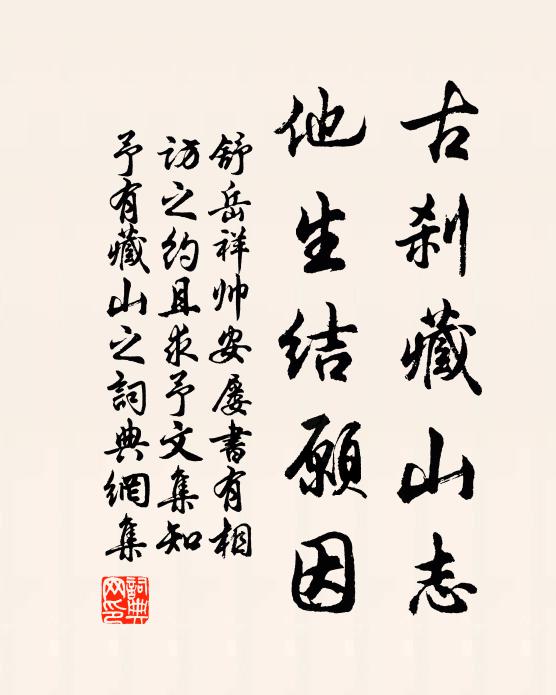 古刹藏山志
他生结願因
舒岳祥帅安屡書有相
访之约且求予文集知
予有藏山之詞典網集
詞典网印